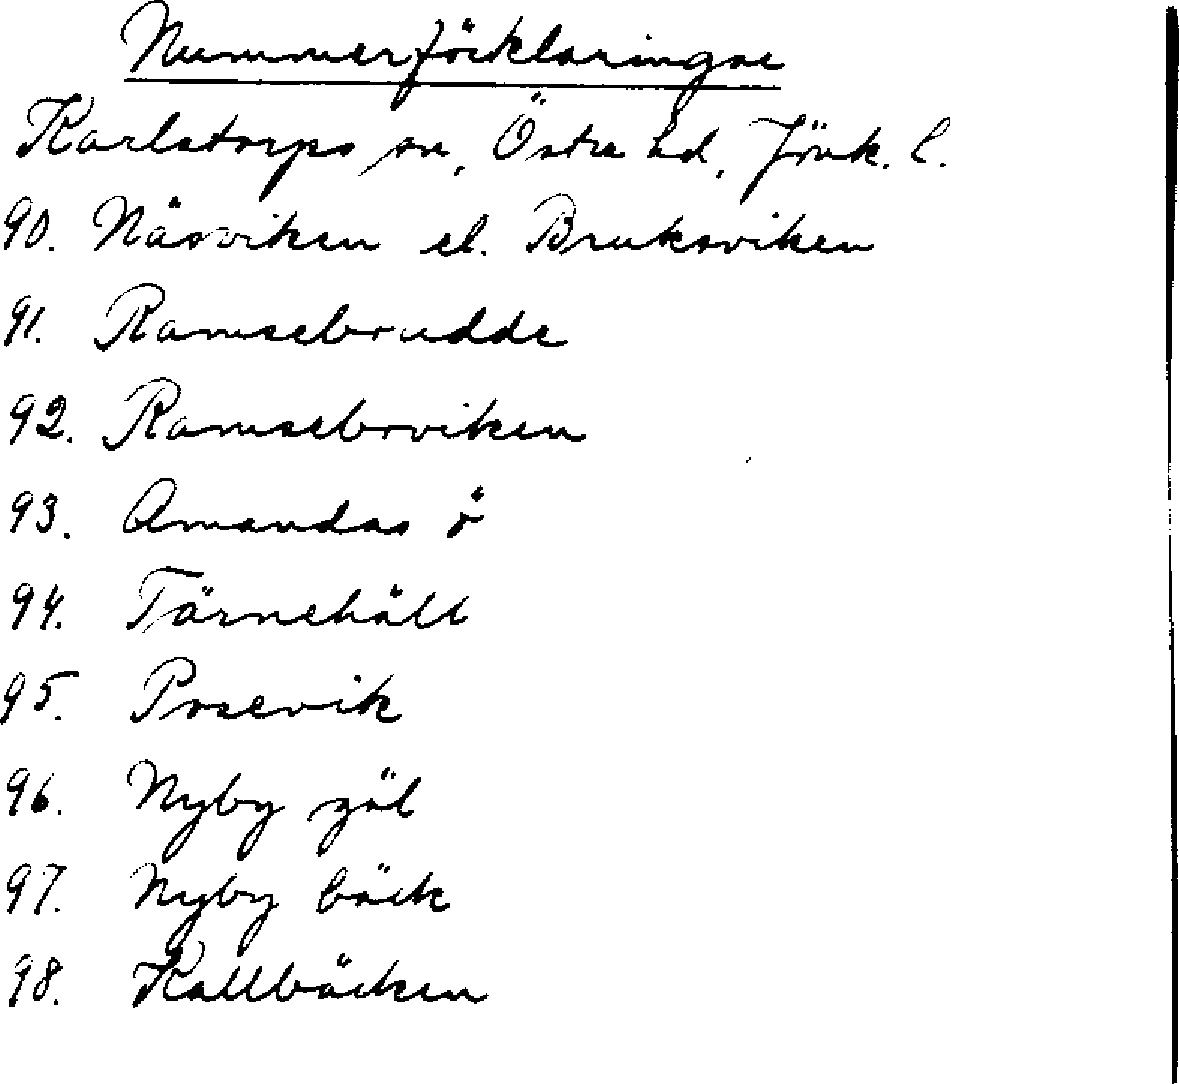 Nummerförklaringar
Karlstorps sn, Östra hd, Jönk. l.
90. Näsviken el. Bruksviken
91. Ramsebroudde
92. Ramsebroviken
93. Amandas ö
94. Tärnehäll
95. Prosevik
96. Nyby göl
97. Nyby bäck
98. Kallbäcken